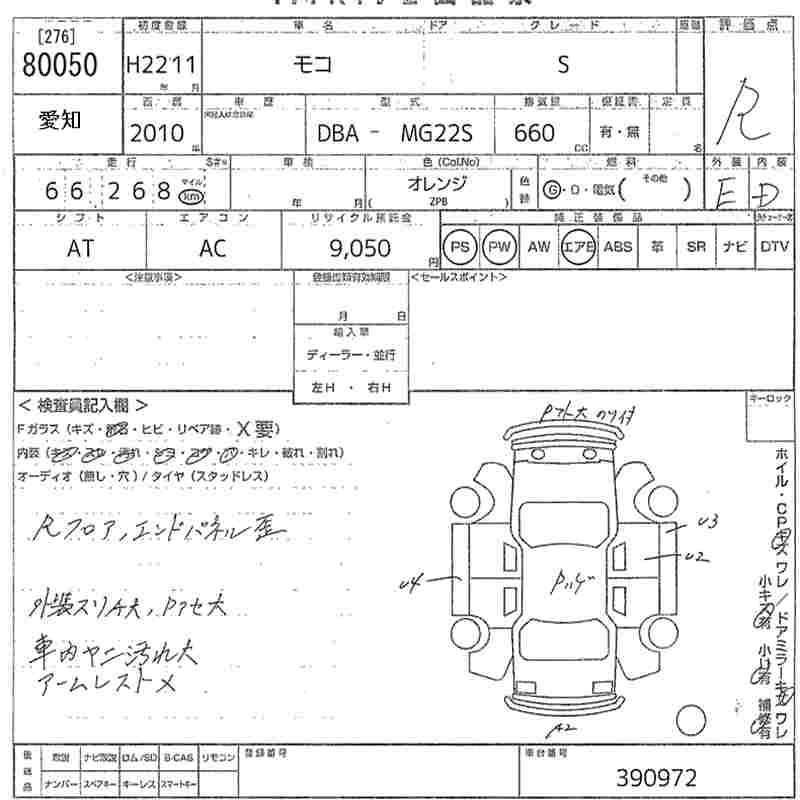 [276]
80050
初度登録
車名
ドア
グレード
評価点
H22 11
年 月
モコ
S
R
愛知
2010
年
車歴
型式
DBA - MG22S
排気量
660
cc
保証書
有・無
定員
名
走行
66,268
マイル
km
車検
年 月
色 (Col.No)
オレンジ
( ZPB )
色替
燃料
G・D・電気( その他 )
外装
内装
E
D
シフト
AT
エアコン
AC
リサイクル預託金
9,050
円
純正装備品
PS
PW
AW
エアB
ABS
革
SR
ナビ
DTV
<注意事項>
登録書類有効期限
月 日
輸入車
ディーラー・並行
左H ・ 右H
<セールスポイント>
< 検査員記入欄 >
Fガラス (キズ・飛石・ヒビ・リペア跡・X要)
内装 (キズ・スレ・汚れ・シミ・コゲ・穴・キレ・破れ・割れ)
オーディオ (無し・穴) / タイヤ (スタッドレス)
Rフロア,エンドパネル歪
外装スリA大,Pアセ大
車内ヤニ汚れ大
アームレストメ
キーロック
U3
U2
U4
Pハゲ
A2
ホイル・CPキズ ワレ / ドアミラーキズ ワレ
小キズ有 小U有 補修有
後送品
取説
ナビ取説
ロム/SD
B-CAS
リモコン
ナンバー
スペアキー
キーレス
スマートキー
登録番号
車台番号
390972